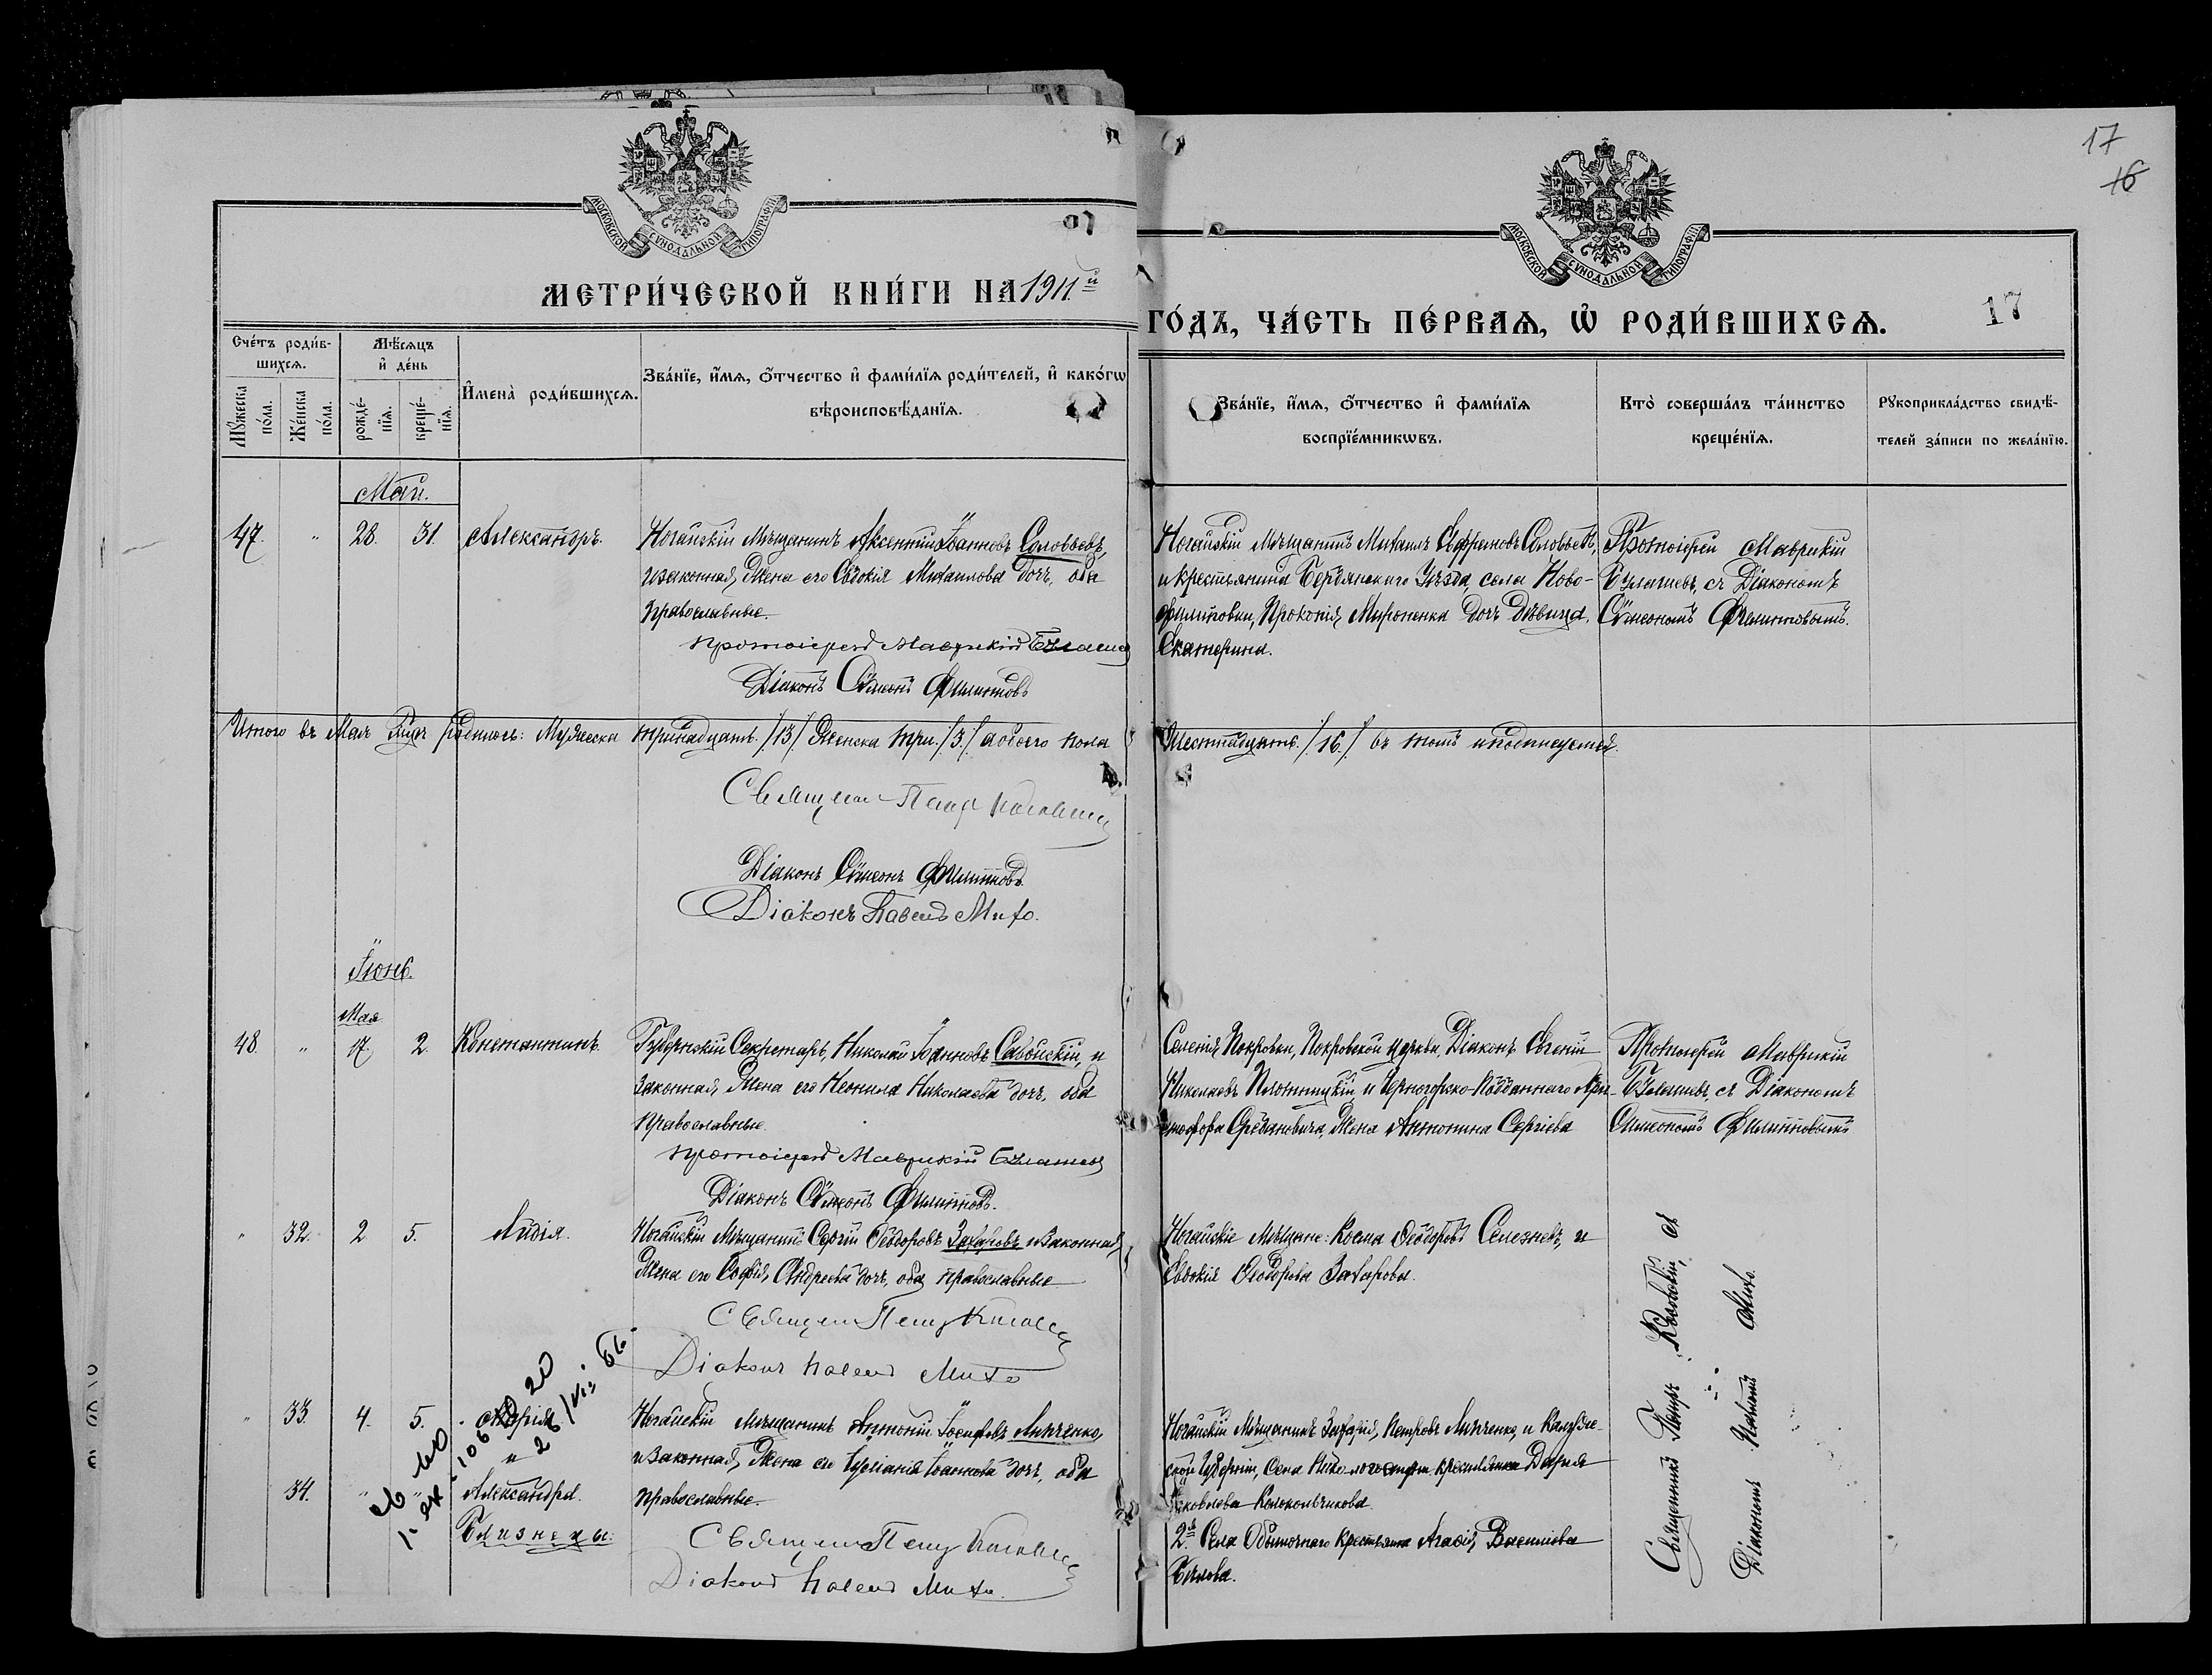 17
16
МОСКОВСКОЙ СѴНОДАЛЬНОЙ ТИПОГРАФІИ
МЕТРИ́ЧЕСКОЙ КНИ́ГИ НА 1911й
МОСКОВСКОЙ СѴНОДАЛЬНОЙ ТИПОГРАФІИ
ГО́ДЪ, ЧА́СТЬ ПЕ́РВАѦ, Ѡ҆ РОДИ́ВШИХСѦ.
17
Сче́тъ роди́в-
шихсѧ.
Мꙋ́жеска по́ла.
Же́нска по́ла.
Мѣ́сѧцъ
и҆ де́нь
рожде́-
нїѧ.
креще́-
нїѧ.
И҆мена̀ роди́вшихсѧ.
Зва́нїе, и҆́мѧ, ѻ҆́тчество и҆ фами́лїѧ роди́телей, и҆ како́гѡ
вѣроисповѣ́данїѧ.
Зва́нїе, и҆́мѧ, ѻ҆́тчество и҆ фами́лїѧ
воспрїе́мникѡвъ.
Кто̀ соверша́лъ та́инство
креще́нїѧ.
Рꙋкоприкла́дство свидѣ́-
телей за́писи по жела́нїю.
Май.
47. " 28. 31. Александръ.
Ногайскій Мѣщанинъ Аксентій Іоанновъ Соловьевъ,
и законная жена его Евдокія Михаилова дочь, оба
православные.
Протоіерей Маврикій
Діаконъ Сѵмеонъ Филипповъ
Ногайскій Мѣщанинъ Михаилъ Соловьевъ,
и крестьянина Бердянскаго Уѣзда, села Ново-
филиповки, Прокопія Мироненка дочь дѣвица,
Екатерина.
Протоіерей Маврикій
съ Діакономъ
Сѵмеономъ Филипповымъ.
Итого въ Маѣ родилось: Мужеска тринадцать /13/ Женска три /3/ а обоего пола
Шестнадцать /16/ въ томъ и подписуемся.
Священ Петръ
Діаконъ Сѵмеонъ Филипповъ
Діаконъ Павелъ Михо.
Іюнь.
Мая
48. " 17. 2. Константинъ.
Губернскій Секретарь, Николай Іоанновъ Савойскій, и
законная жена его Неонила Николаева дочь, оба
православные.
Протоіерей Маврикій
Діаконъ Сѵмеонъ Филипповъ.
Селенія Покровки, Покровской церкви, Діаконъ Евгеній
Николаевъ и Черногорско-Подданнаго
жена Антонина Сергіева
Протоіерей Маврикій
съ Діакономъ
Симеономъ Филипповымъ
" 32. 2 5. Лидія.
Ногайскій Мѣщанинъ Сергій Ѳеодоровъ Захаровъ и законная
жена его Софія Андреева дочь, оба православные
Священ Петръ
Діаконъ Павелъ Михо
Ногайскіе Мѣщане: Косма Ѳеодоровъ Селезневъ, и
Евдокія Ѳеодорова Захарова.
" 33. 4. 5. Марія
и
34. " " Александра.
Близнецы.
Ногайскій Мѣщанинъ Антоній Іосифовъ Линченко,
и законная жена его Іуліанія Іоаннова дочь, оба
православные.
Священ Петръ
Діаконъ Павелъ Михо.
Ногайскій Мѣщанинъ Захарій Петровъ Линченко, и Калуж-
ской Губерніи, Села крестьянка Дарія
Яковлева Колокольчикова.
2й Села Обыточнаго крестьянка Агафія Василіева
Священникъ Петръ съ
Діакономъ Павломъ Михо.